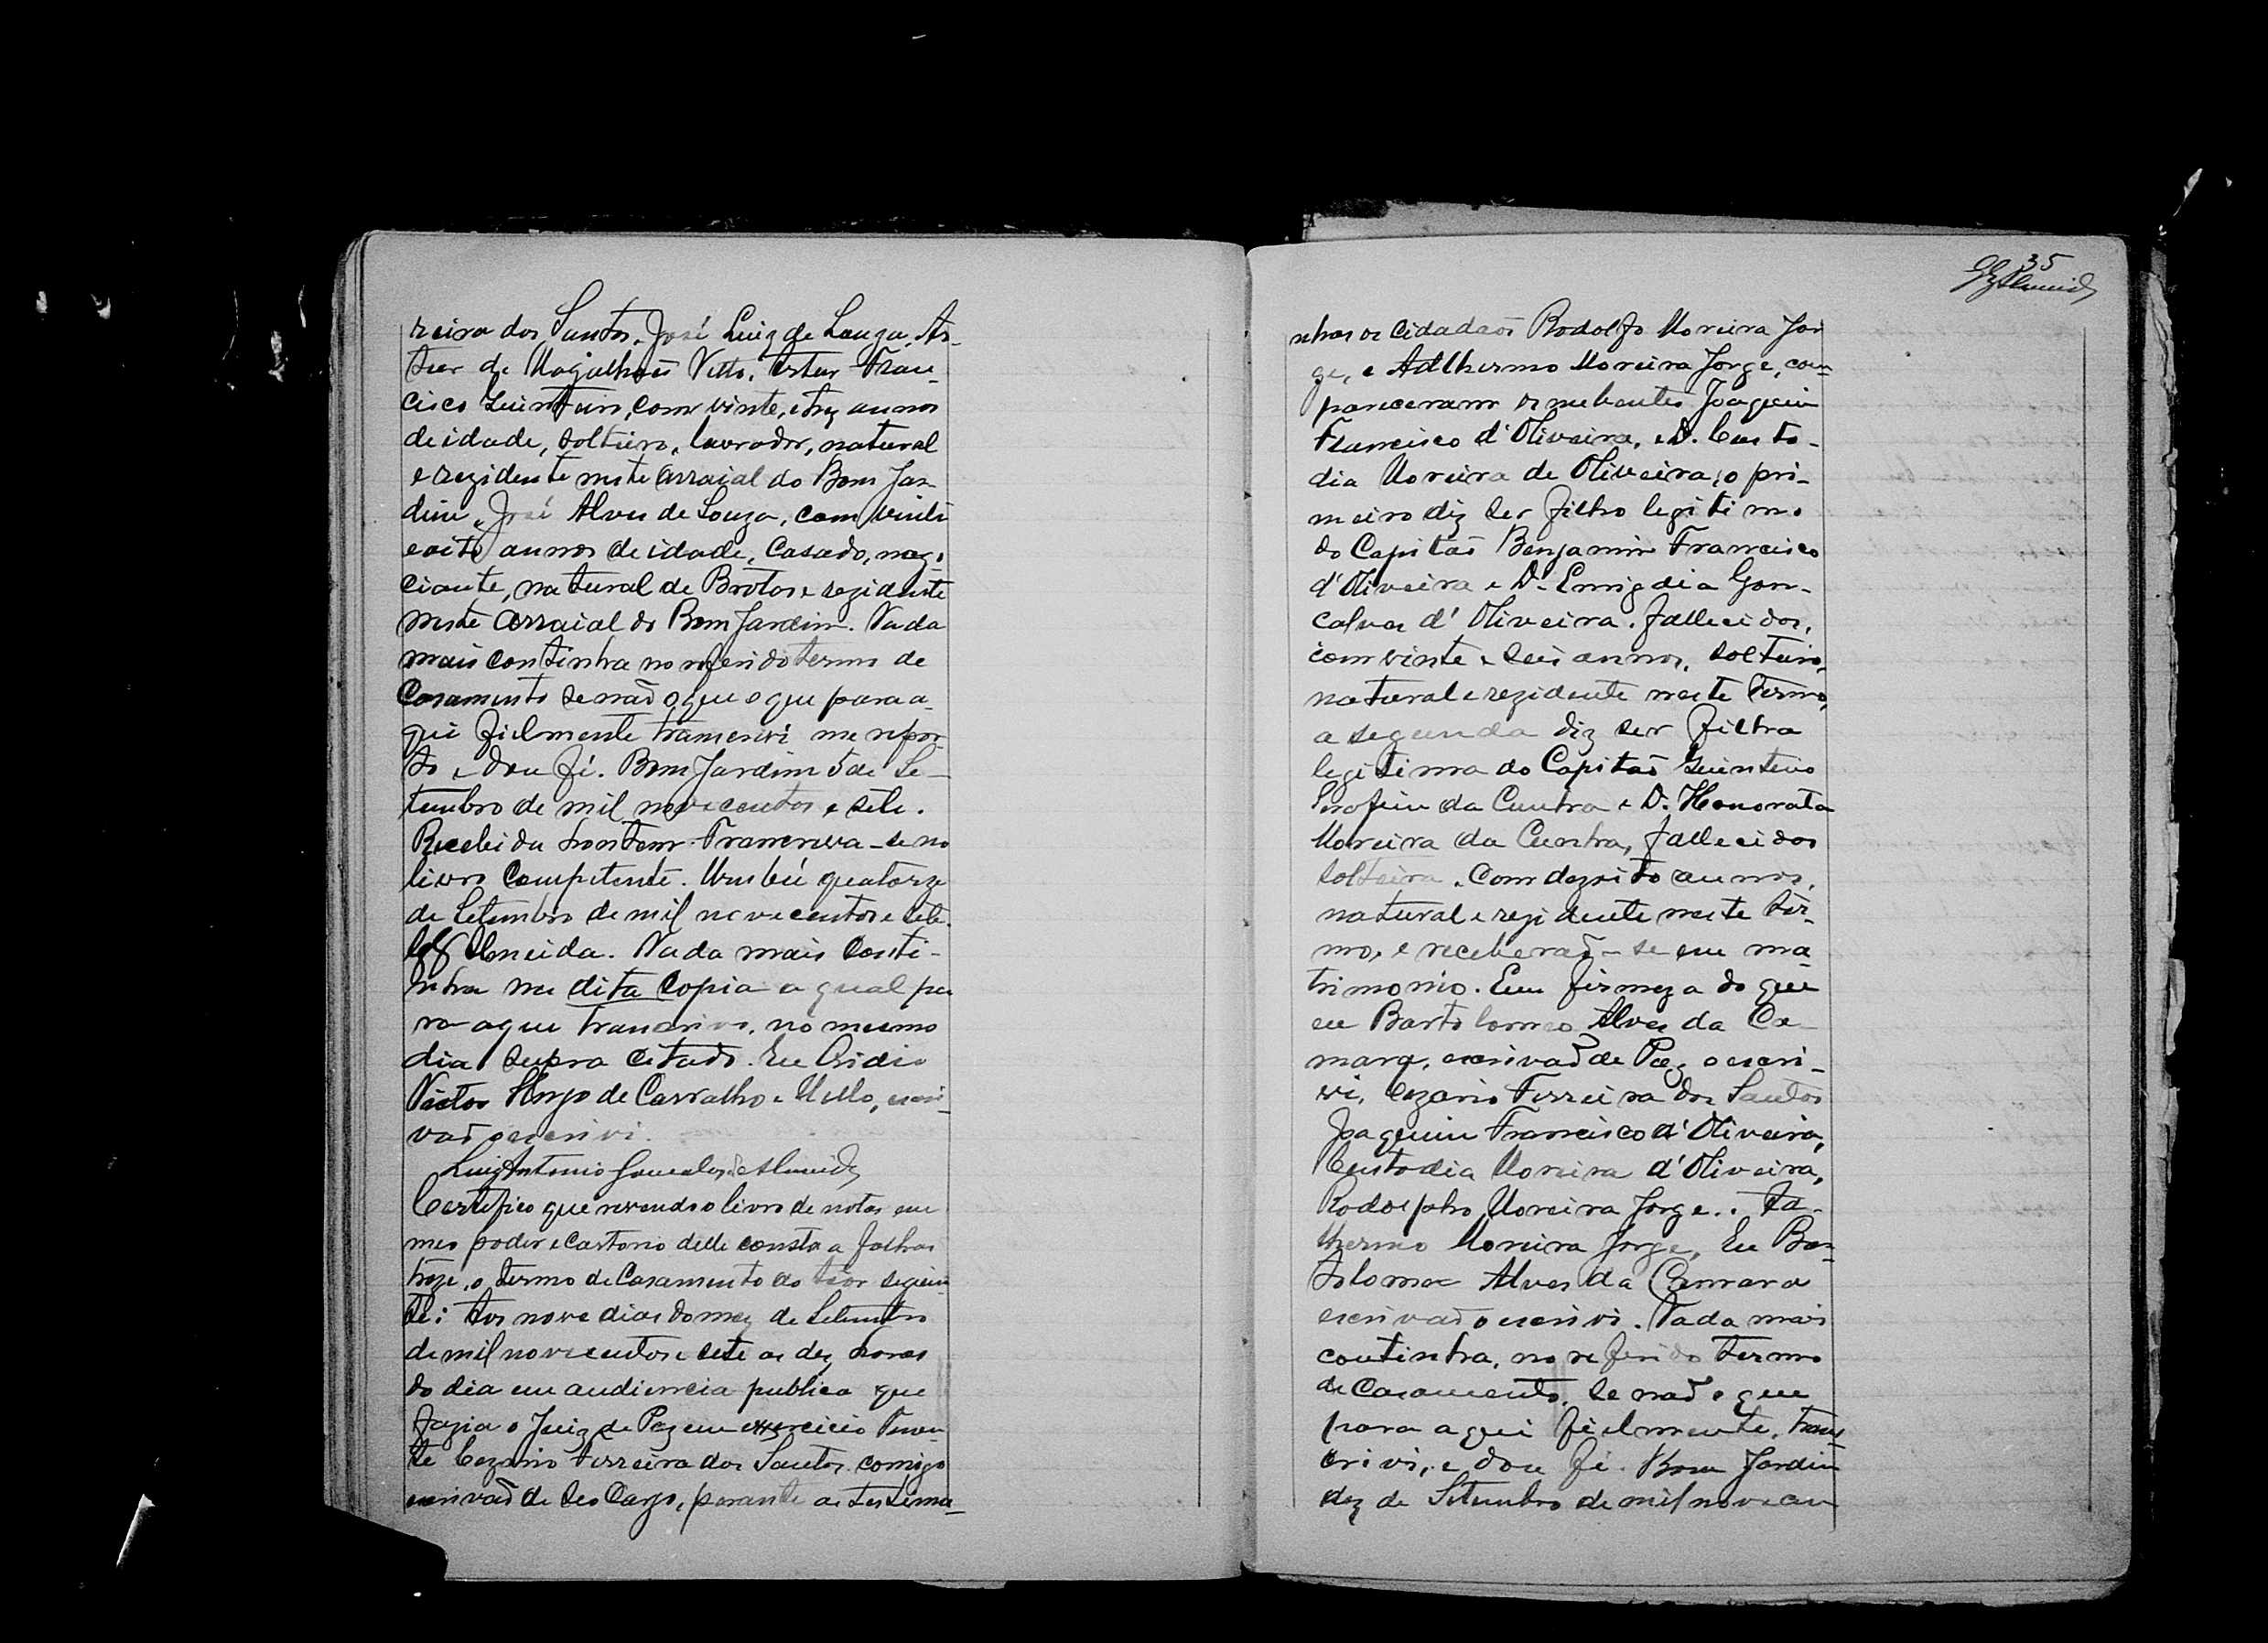 reira dos Santos. José Luiz de Souza, Ar-
tur de Magalhães Netto. Artur Fran-
cisco Quinteiro, com vinte, e trez annos
de idade, solteiro, lavrador, natural
e rezidente neste arraial do Bom Jar-
dim, José Alves de Souza, com vinte
e oito annos de idade, Casado, nego
ciante, natural de Brotas e rezidente
neste arraial do Bom Jardim. Nada
mais continha no referido termo de
Casamento se não o que para a-
qui fielmente transcrivi me repor
to e dou fé. Bom Jardim 5 de Se-
tembro de mil novecentos e sete.
Recebida hontem. Transcreva-se no
livro Competente. Urubú quatorze
de Setembro de mil novecentos e sete.
Almeida. Nada mais Conti-
nha na dita Copia a qual pa
ra aqui transcrivo, no mesmo
dia supra citado. Eu
Victor Hugo de Carvalho e Mello, escri-
vaõ o escrivi.
Luiz Antonio Goncalves de Almeida
Certifico que revendo o livro de notas em
meo poder e Cartorio delle consta a folhas
treze, o termo de Casamento do têor seguin
te: Aos nove dias do mez de Setembro
de mil novecentos e sete as dez horas
do dia em audiencia publica que
fazia o Juiz de Paz em exercicio Tenen
te Cezario Ferreira dos Santos comigo
escrivaõ de seo Cargo, perante as testemu-
35
Almeida
nhas os Cidadaõs Rodolfo Moreira Jor
ge, e Adthermo Moreira Jorge, com-
pareceram os nubentes Joaquim
Francisco d'Oliveira, e D. Custo-
dia Moreira de Oliveira; o pri-
meiro diz ser filho legitimo
do Capitaõ Benjamin Francisco
d'Oliveira e D. Emigdia Gon-
calves d'Oliveira. fallecidos,
com vinte e seis annos, solteiro,
natural e rezidente neste termo,
a segunda diz ser filha
legitima do Capitaõ Quinteiro
Serofim da Cunha e D. Honorata
Moreira da Cunha, fallecidos
solteira. Com dezoito annos,
natural e rezidente neste ter-
mo, e receberaõ-se em ma
trimonio. Em firmeza do que
eu Bartolomeo Alves da Ca-
mara, escrivaõ de Paz o escri-
vi, Cezario Ferreira dos Santos
Joaquim Francisco d'Oliveira,
Custodia Moreira d'Oliveira,
Rodolpho Moreira Jorge.. Ad-
thermo Moreira Jorge, Eu Bar-
tolomeo Alves da Camara
escrivaõ o escrivi. Nada mais
continha, no referido termo
de Casamento, se naõ o que
para aqui fielmente, trans
crivi, e dou fé. Bom Jardim
dez de Setembro de mil novecen